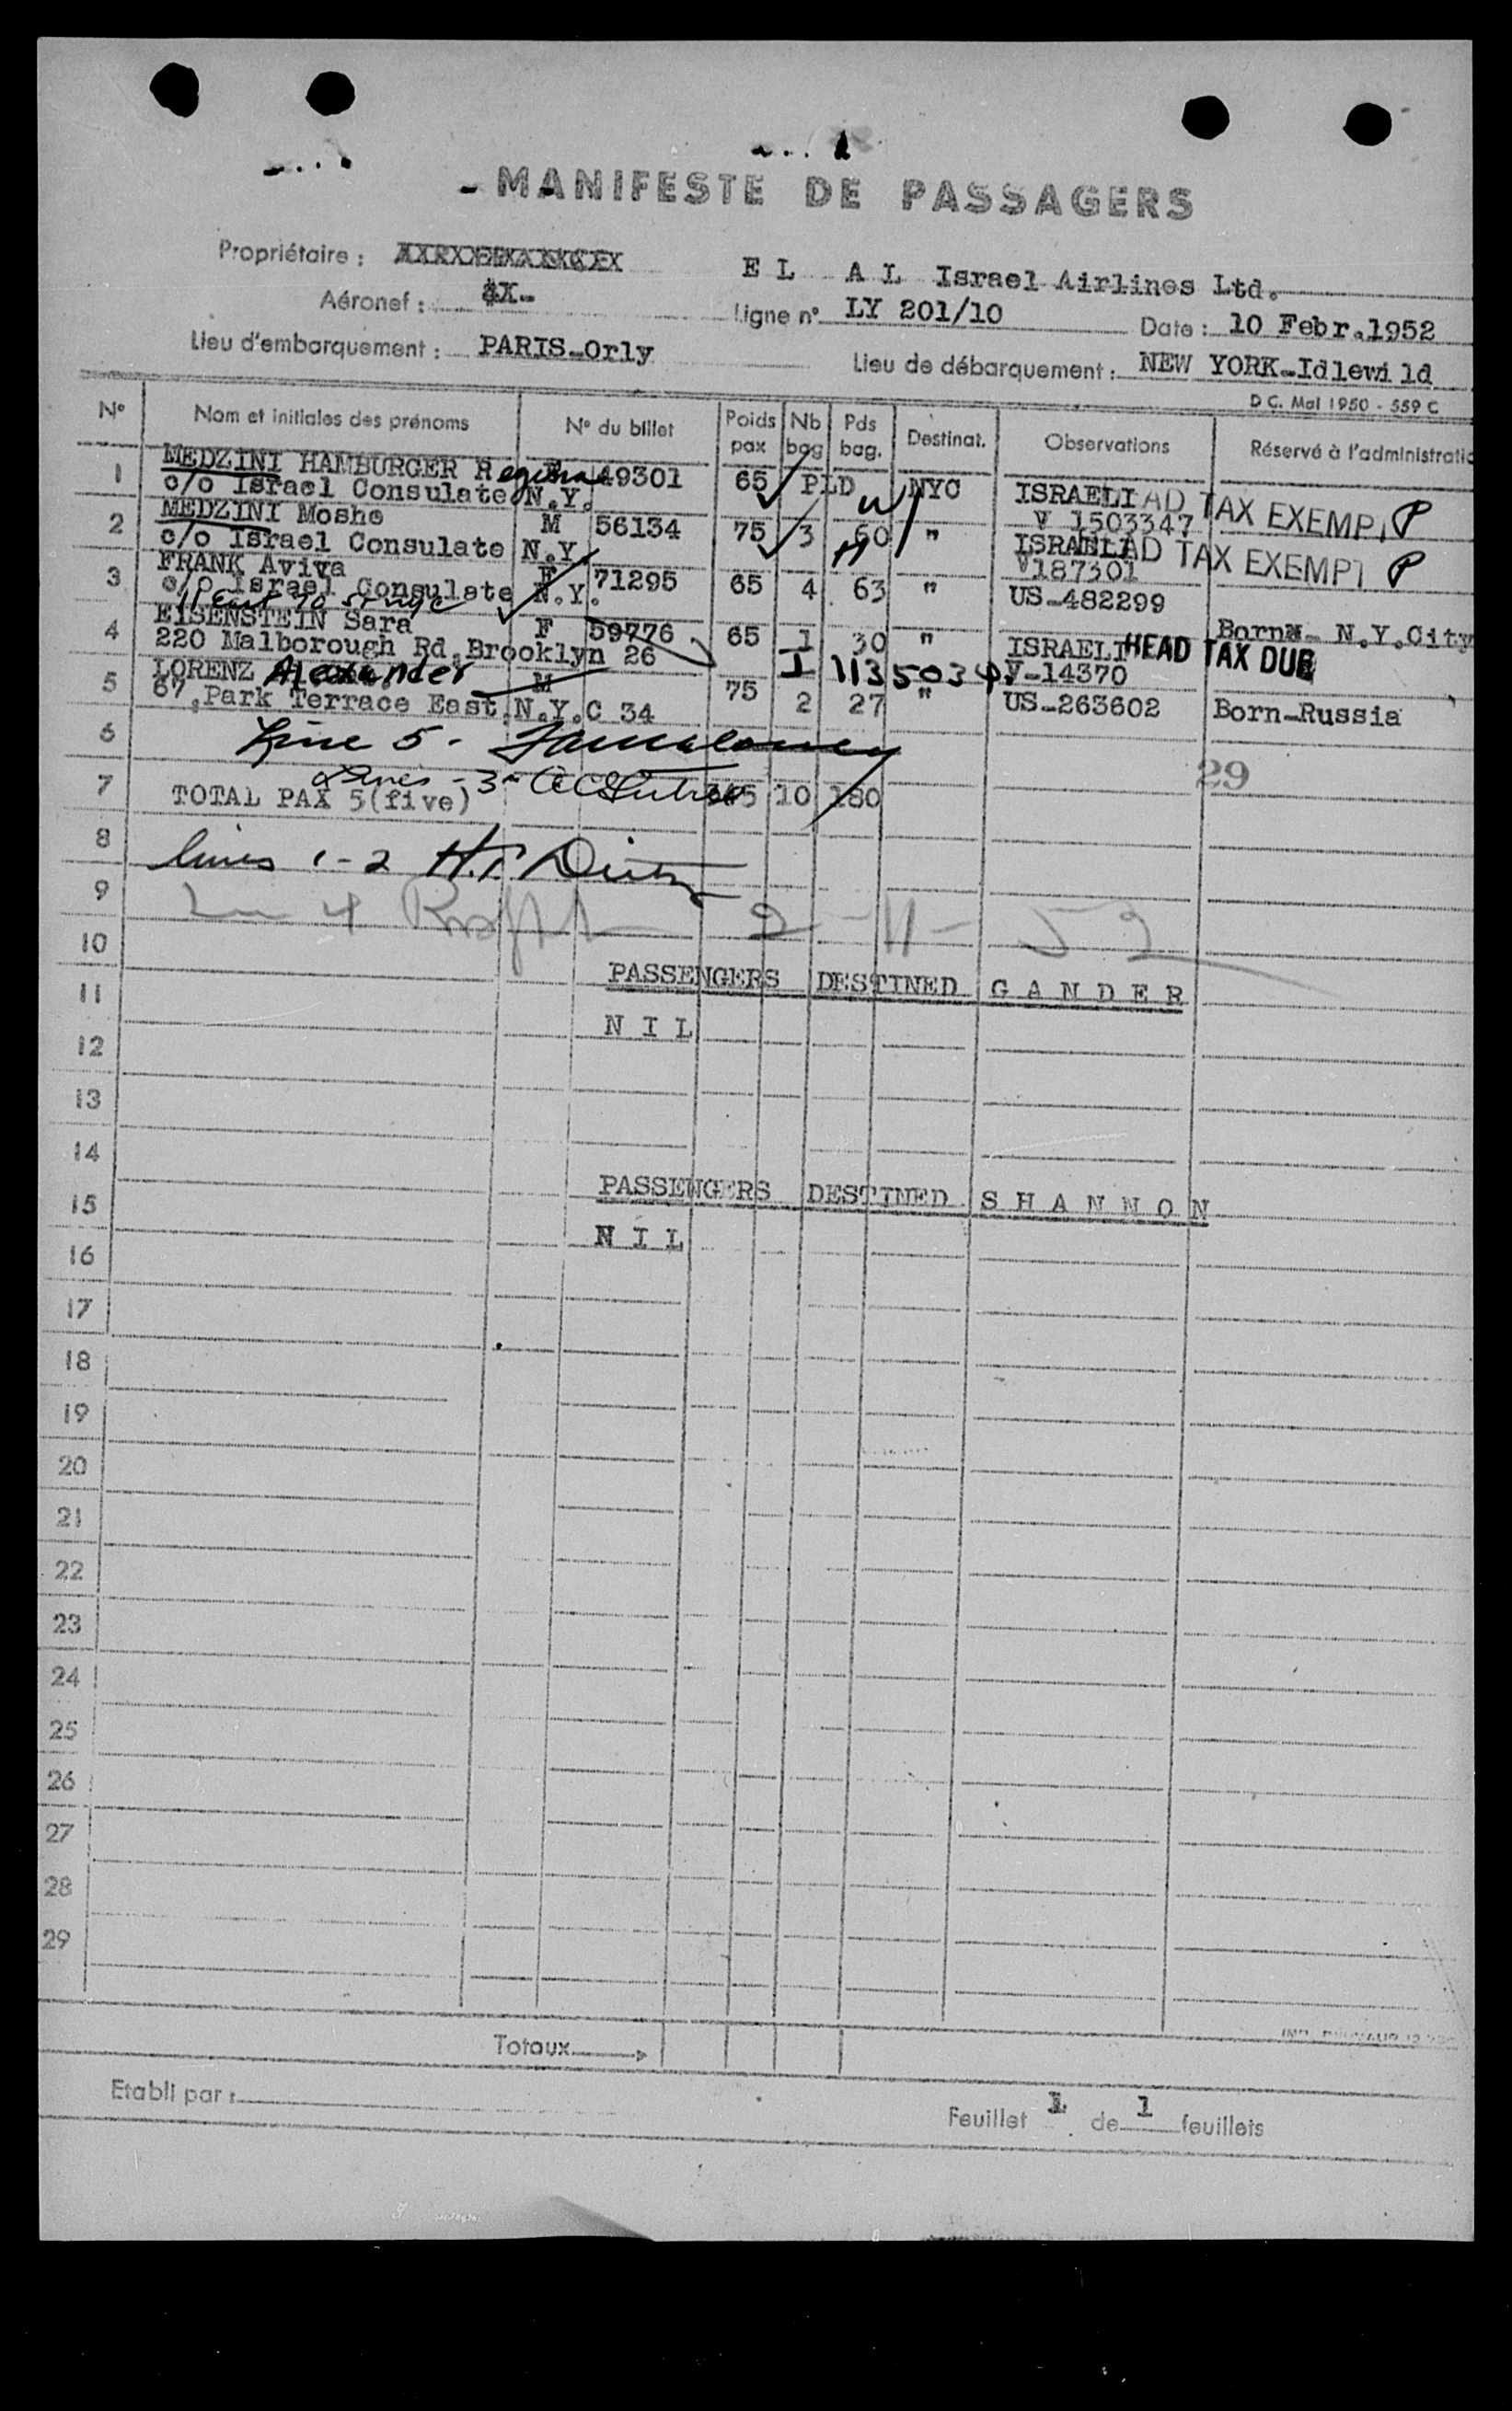 - MANIFESTE DE PASSAGERS
Propriétaire : EL AL Israel Airlines Ltd.
Aéronef : 4X- Ligne n° LY 201/10 Date : 10 Febr.1952
Lieu d'embarquement : PARIS-Orly Lieu de débarquement : NEW YORK-Idlewild
D C. Mai 1950 - 559 C
N° Nom et initiales des prénoms N° du billet Poids pax Nb bag Pds bag. Destinat. Observations Réservé à l'administratio
1 MEDZINI HAMBURGER Regina F 49301 65 PLD NYC ISRAELI AD TAX EXEMPT P
c/o Israel Consulate N.Y. V 1503347
2 MEDZINI Moshe M 56134 75 3 60 " ISRAELI AD TAX EXEMPT P
c/o Israel Consulate N.Y. V187301
3 FRANK Aviva F 71295 65 4 63 " US-482299
c/o Israel Consulate N.Y.
Born- N.Y.City
4 EISENSTEIN Sara F 59776 65 1 30 " ISRAELI HEAD TAX DUE
220 Malborough Rd.Brooklyn 26 I 1135034 V-14370
5 LORENZ Alexander M 75 2 27 " US-263602 Born-Russia
67,Park Terrace East,N.Y.C 34
6 Line 5-
29
Lines - 3-
7 TOTAL PAX 5(five) 345 10 180
8
lines 1-2 H.
9
Line 4 2-11-52
10
PASSENGERS DESTINED GANDER
11
NIL
12
13
14
PASSENGERS DESTINED SHANNON
15
NIL
16
17
18
19
20
21
22
23
24
25
26
27
28
29
Totaux
Etabli par :
Feuillet 1 de 1 feuillets